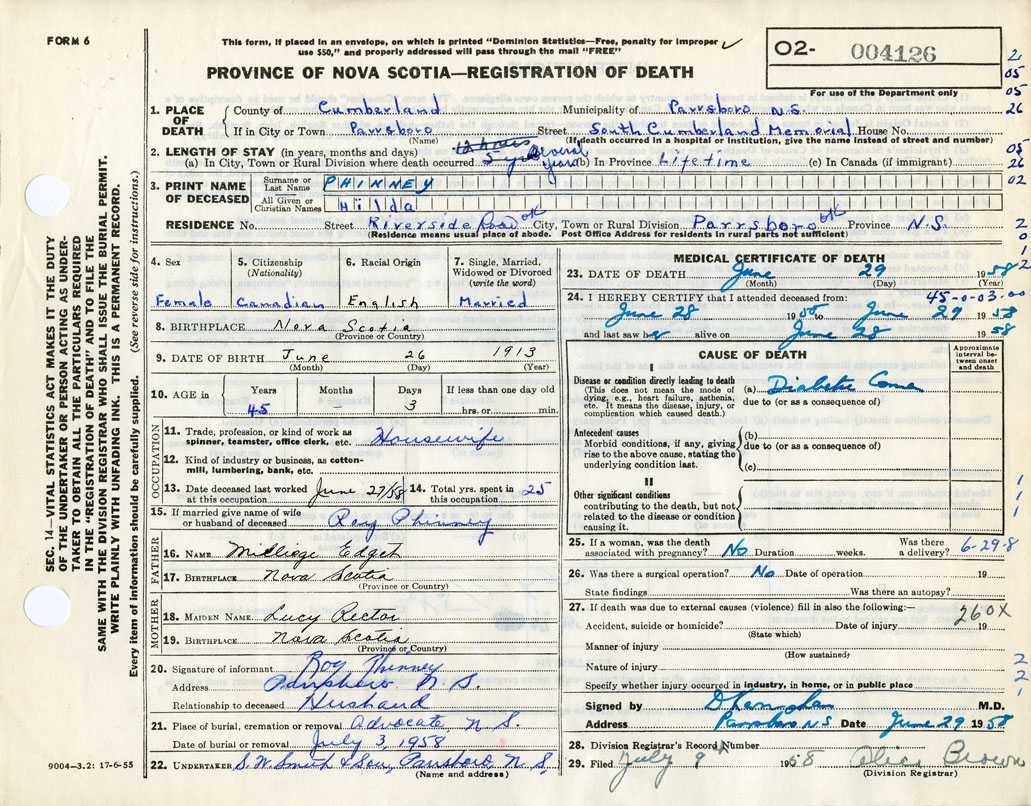 FORM 6
This form, if placed in an envelope, on which is printed "Dominion Statistics—Free, penalty for improper
use $50," and properly addressed will pass through the mail "FREE"
PROVINCE OF NOVA SCOTIA—REGISTRATION OF DEATH
O2- 004126
For use of the Department only
SEC. 14—VITAL STATISTICS ACT MAKES IT THE DUTY
OF THE UNDERTAKER OR PERSON ACTING AS UNDER-
TAKER TO OBTAIN ALL THE PARTICULARS REQUIRED
IN THE "REGISTRATION OF DEATH" AND TO FILE THE
SAME WITH THE DIVISION REGISTRAR WHO SHALL ISSUE THE BURIAL PERMIT.
WRITE PLAINLY WITH UNFADING INK. THIS IS A PERMANENT RECORD.
Every item of information should be carefully supplied. (See reverse side for instructions.)
1. PLACE OF DEATH
County of Cumberland Municipality of Parrsboro N.S.
If in City or Town Parrsboro Street South Cumberland Memorial House No.
(Name) (If death occurred in a hospital or institution, give the name instead of street and number)
2. LENGTH OF STAY (in years, months and days)
(a) In City, Town or Rural Division where death occurred (b) In Province Lifetime (c) In Canada (if immigrant)
3. PRINT NAME OF DECEASED
Surname or Last Name PHINNEY
All Given or Christian Names Hilda
RESIDENCE No. Street Riverside Road ok City, Town or Rural Division Parrsboro ok Province N.S.
(Residence means usual place of abode. Post Office Address for residents in rural parts not sufficient)
4. Sex Female
5. Citizenship (Nationality) Canadian
6. Racial Origin English
7. Single, Married, Widowed or Divorced (write the word) Married
8. BIRTHPLACE Nova Scotia
(Province or Country)
9. DATE OF BIRTH June 26 1913
(Month) (Day) (Year)
10. AGE in Years 45 Months – Days 3 If less than one day old hrs. or min.
OCCUPATION
11. Trade, profession, or kind of work as spinner, teamster, office clerk, etc. Housewife
12. Kind of industry or business, as cotton-mill, lumbering, bank, etc.
13. Date deceased last worked at this occupation June 27/58 14. Total yrs. spent in this occupation 25
15. If married give name of wife or husband of deceased Roy Phinney
FATHER
16. NAME Milliege Edgett
17. BIRTHPLACE Nova Scotia
(Province or Country)
MOTHER
18. MAIDEN NAME Lucy Rector
19. BIRTHPLACE Nova Scotia
(Province or Country)
20. Signature of informant Roy Phinney
Address Parrsboro N.S.
Relationship to deceased Husband
21. Place of burial, cremation or removal Advocate, N.S.
Date of burial or removal July 3, 1958
22. UNDERTAKER S.W. Smith & Son, Parrsboro N.S.
(Name and address)
9004—3.2: 17-6-55
MEDICAL CERTIFICATE OF DEATH
23. DATE OF DEATH June 29 1958
(Month) (Day) (Year)
45-0-03-00
24. I HEREBY CERTIFY that I attended deceased from:
June 28 19 to June 29 1958
and last saw her alive on June 28 1958
CAUSE OF DEATH
Approximate interval between onset and death
I
Disease or condition directly leading to death (a) Diabetic Coma
(This does not mean the mode of dying, e.g., heart failure, asthenia, etc. It means the disease, injury, or complication which caused death.)
due to (or as a consequence of)
Antecedent causes
Morbid conditions, if any, giving rise to the above cause, stating the underlying condition last.
(b)
due to (or as a consequence of)
(c)
II
Other significant conditions
contributing to the death, but not related to the disease or condition causing it.
25. If a woman, was the death associated with pregnancy? No Duration weeks. Was there a delivery? 6-29-8
26. Was there a surgical operation? No Date of operation 19
State findings Was there an autopsy?
27. If death was due to external causes (violence) fill in also the following:—
260X
Accident, suicide or homicide? Date of injury 19
(State which)
Manner of injury
(How sustained)
Nature of injury
Specify whether injury occurred in industry, in home, or in public place
Signed by M.D.
Address Parrsboro N.S. Date June 29 1958
28. Division Registrar's Record Number
29. Filed July 9th 1958 Alice Brown
(Division Registrar)
2
05
05
26
05
26
02
2
0
1
2
1
1
1
2
2
1